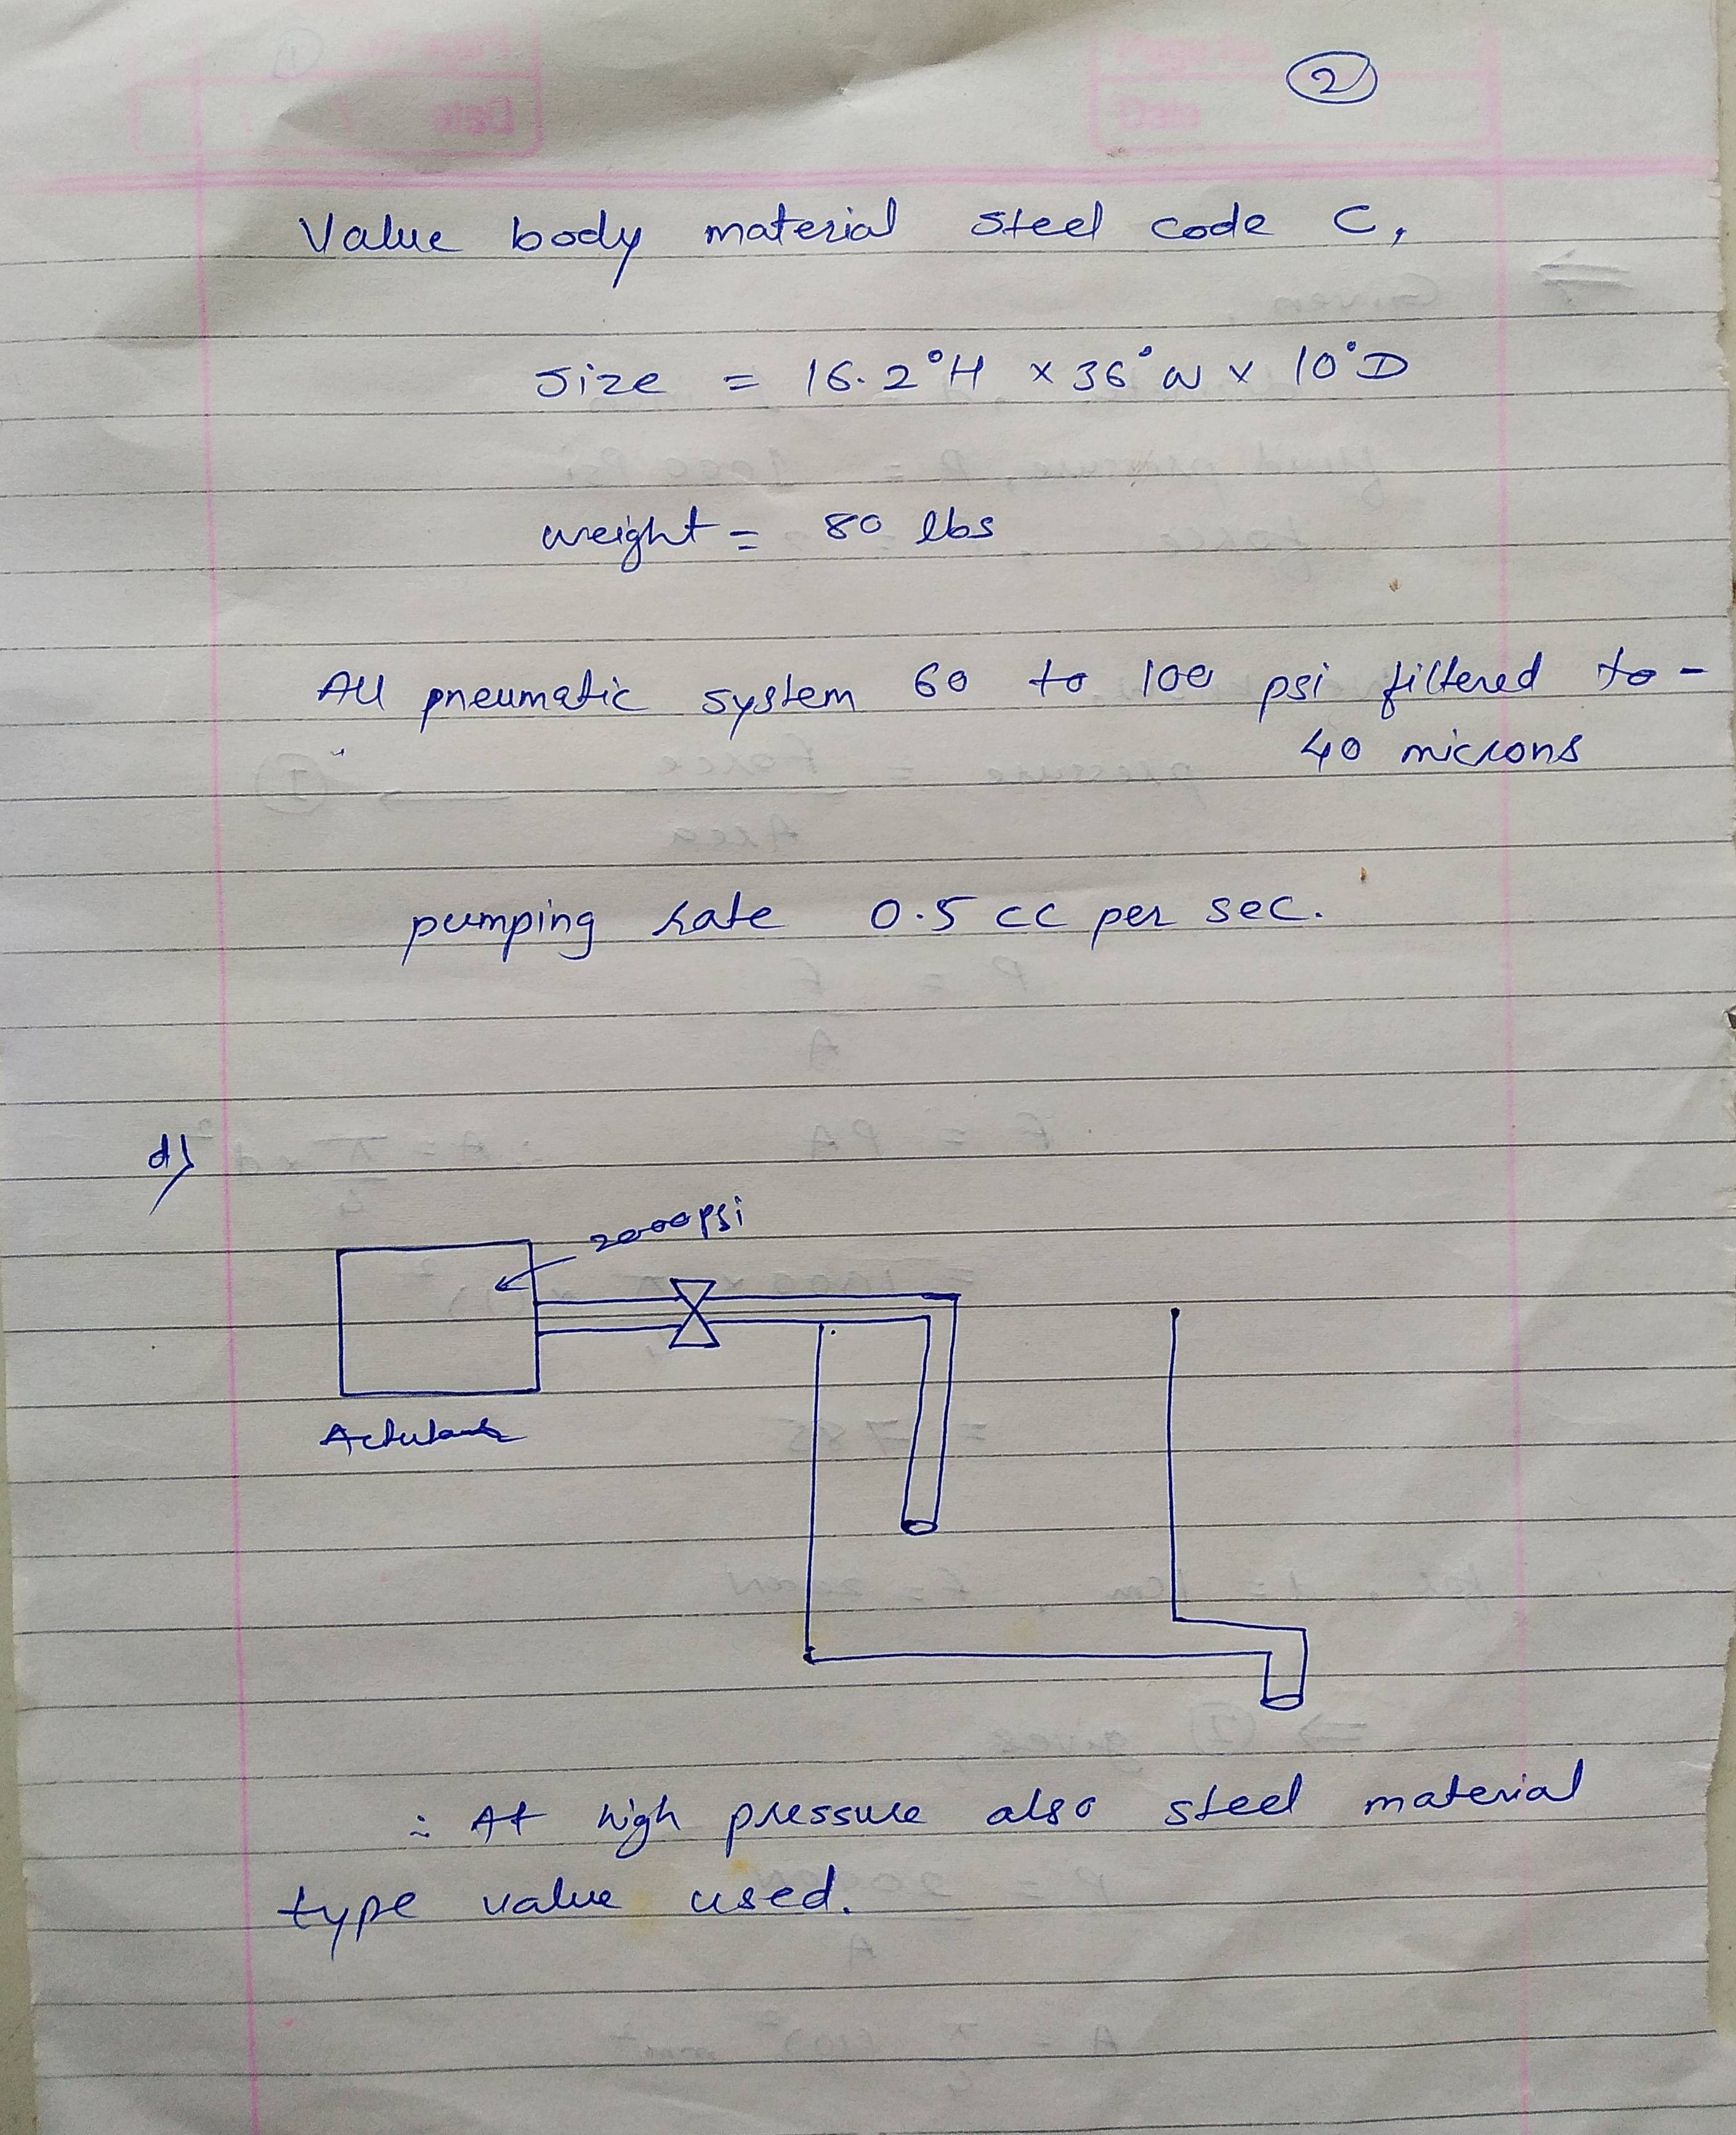 2
Value body material steel code C,
Size = 16.2°H × 36°W × 10°D
weight = 80 lbs
All pneumatic system 60 to 100 psi filtered to -
40 microns
pumping rate 0.5 cc per sec.
d)
2000 psi
∴ At high pressure also steel material
type value used.